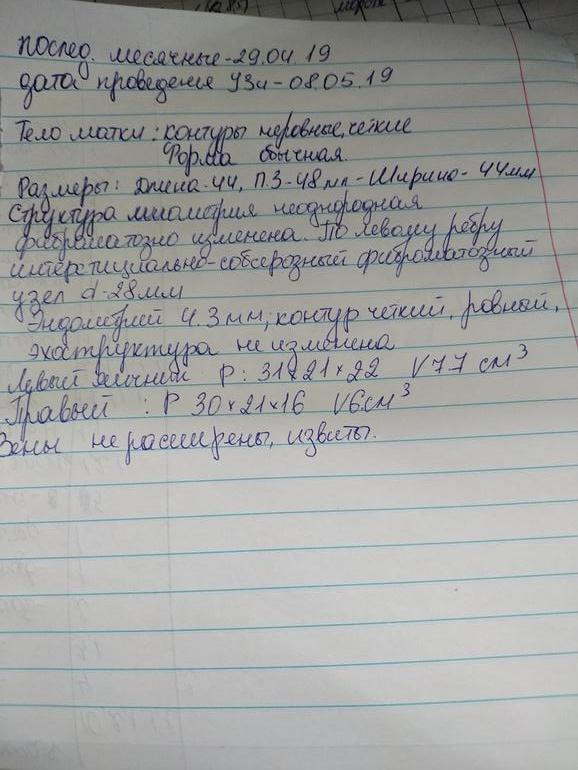 послед. месячные-29.04.19
дата проведения УЗи-08.05.19
Тело матки: контуры неровные, четкие
Форма обычная
Размеры: Длина-44, П.З-48мм-Ширина-44мм
Структура миометрия неоднородная
фиброматозно изменена. По левому ребру
интерстициально-собсерозный фиброматозный
узел d-28мм
Эндометрий 4.3мм, контур чёткий, ровный,
эхоструктура не изменена
Левый яичник Р: 31×21×22 V 7.7 см³
Правый : Р 30×21×16 V6см³
Вены не расширены, извиты.